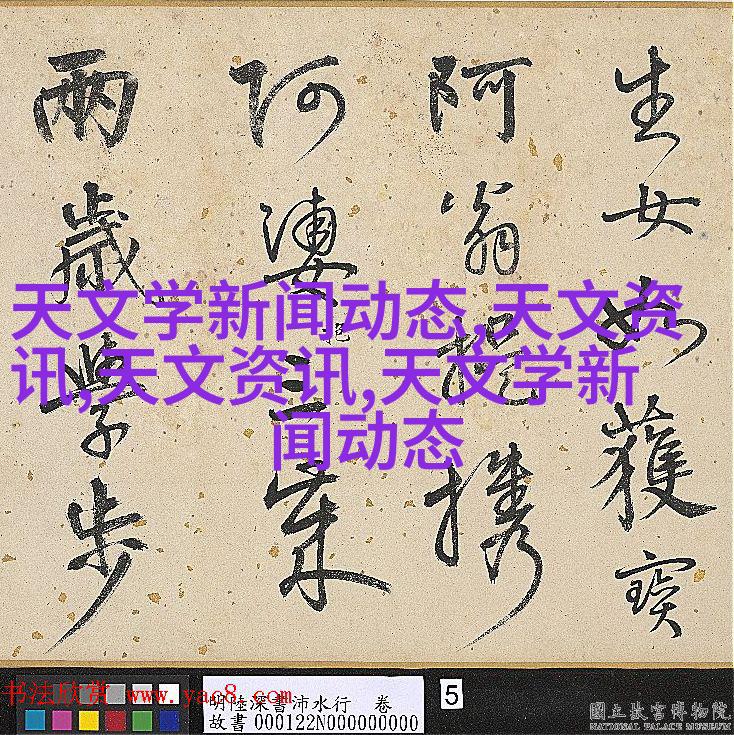 生女如獲寶
阿翁提攜
阿婆三
兩歲學步
天文学新闻动态,天文资
讯,天文资讯,天文学新
闻动态
书法欣赏 www.yac8.com
明陸深書沛水行 卷
故書 000122N000000000
5
國立故宮博物院
NATIONAL PALACE MUSEUM